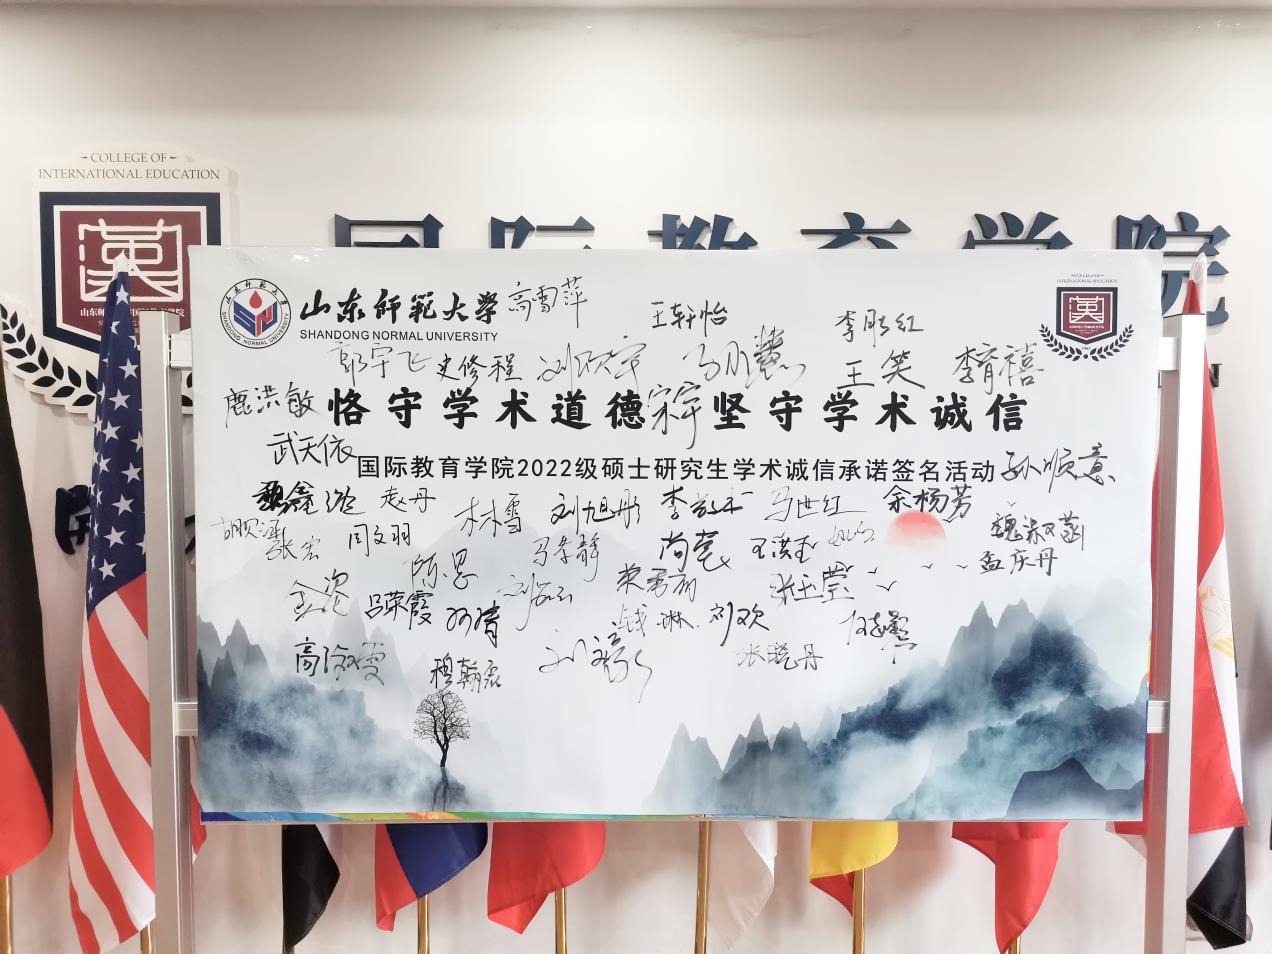 COLLEGE OF
INTERNATIONAL EDUCATION
国际教育学院
山东师范大学
SHANDONG NORMAL UNIVERSITY
高雪萍
王轩怡
李彤红
COLLEGE OF
INTERNATIONAL EDUCATION
郭宇飞 史修程 刘欣宇 马小慧 王笑 李育禧
鹿洪敏
恪守学术道德 宋宇 坚守学术诚信
武天依
国际教育学院2022级硕士研究生学术诚信承诺签名活动
孙顺意
赵丹 林雪 刘旭彤 马世红 余杨芳
张宏 周文羽 马孝静 尚莹 王洪玉 魏淑菡
陈思 荣君丽 张玉莹 孟庆丹
吕荣霞 孙清 钱琳 刘欢
穆翰宸 张晓丹